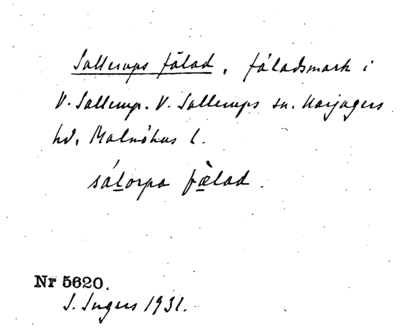 Sallerups fälad, fäladsmark i
V. Sallerup. V. Sallerups sn. Harjagers
hd. Malmöhus l.
sálorpa fälad.
Nr 5620.
S. Ingers 1931.